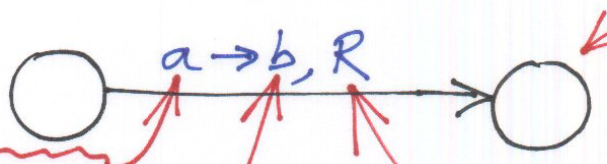 a → b, R